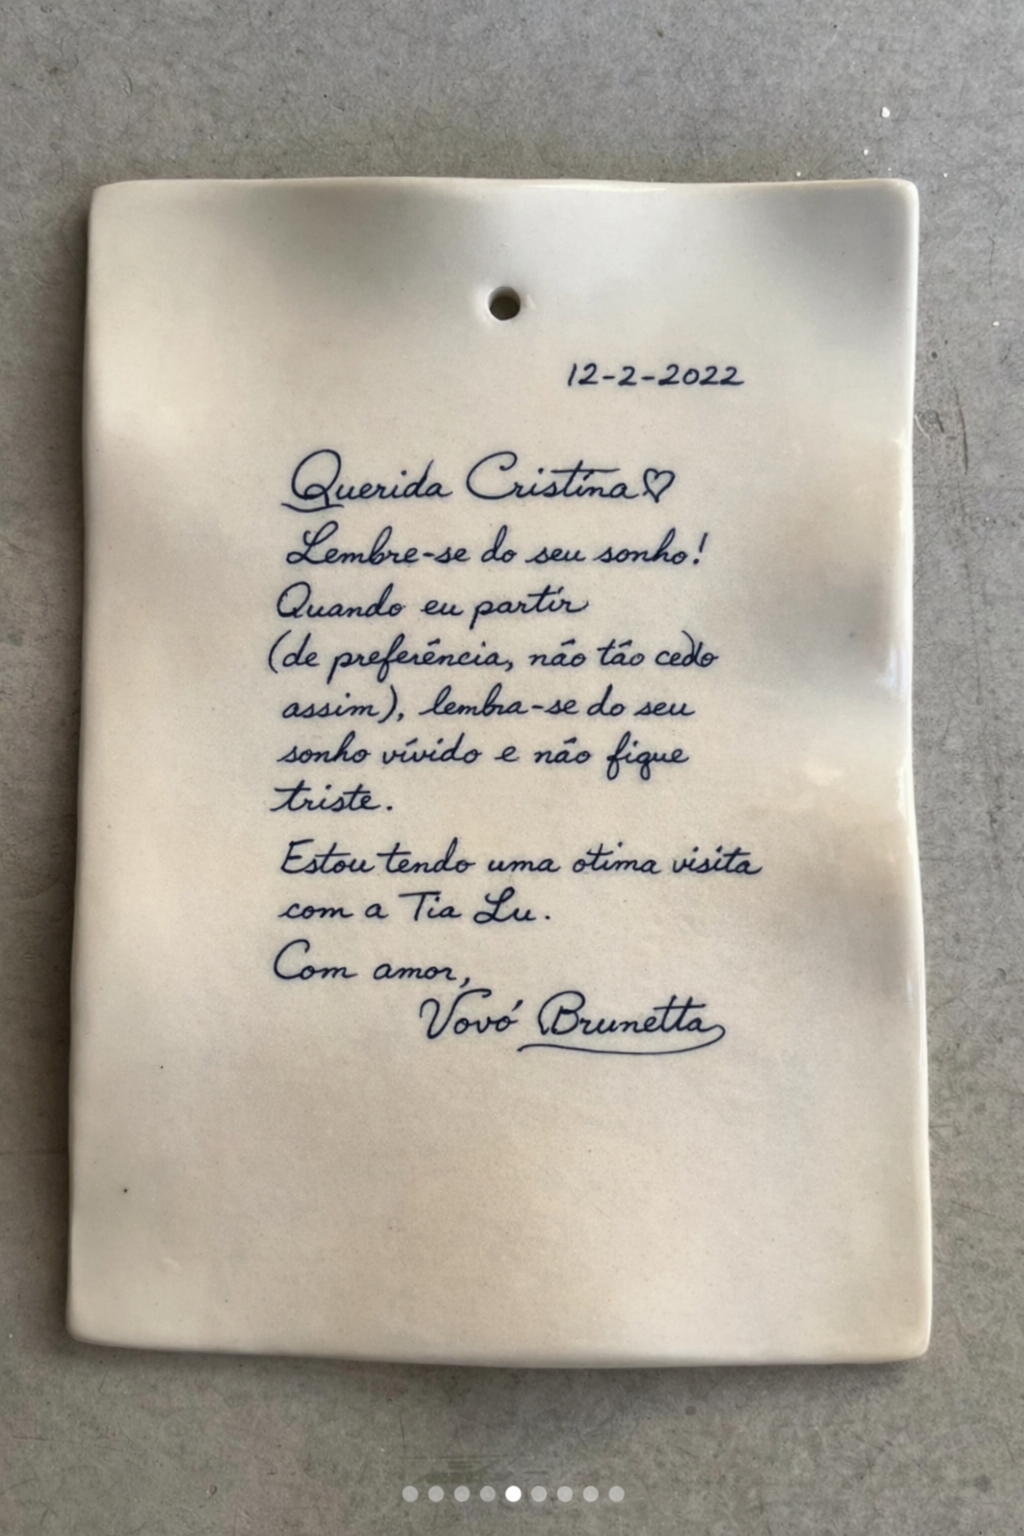 12-2-2022
Querida Cristina♡
Lembre-se do seu sonho!
Quando eu partir
(de preferência, não tão cedo
assim), lembra-se do seu
sonho vívido e não fique
triste.
Estou tendo uma otima visita
com a Tia Lu.
Com amor,
Vovó Brunetta